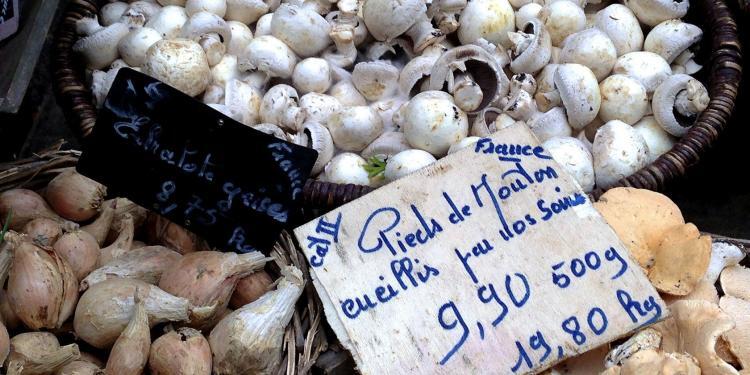 Echalote grises
France
9,75 Kg
France
cat II
Pieds de Mouton
cueillis par nos soins
9,90 500g
19,80 Kg